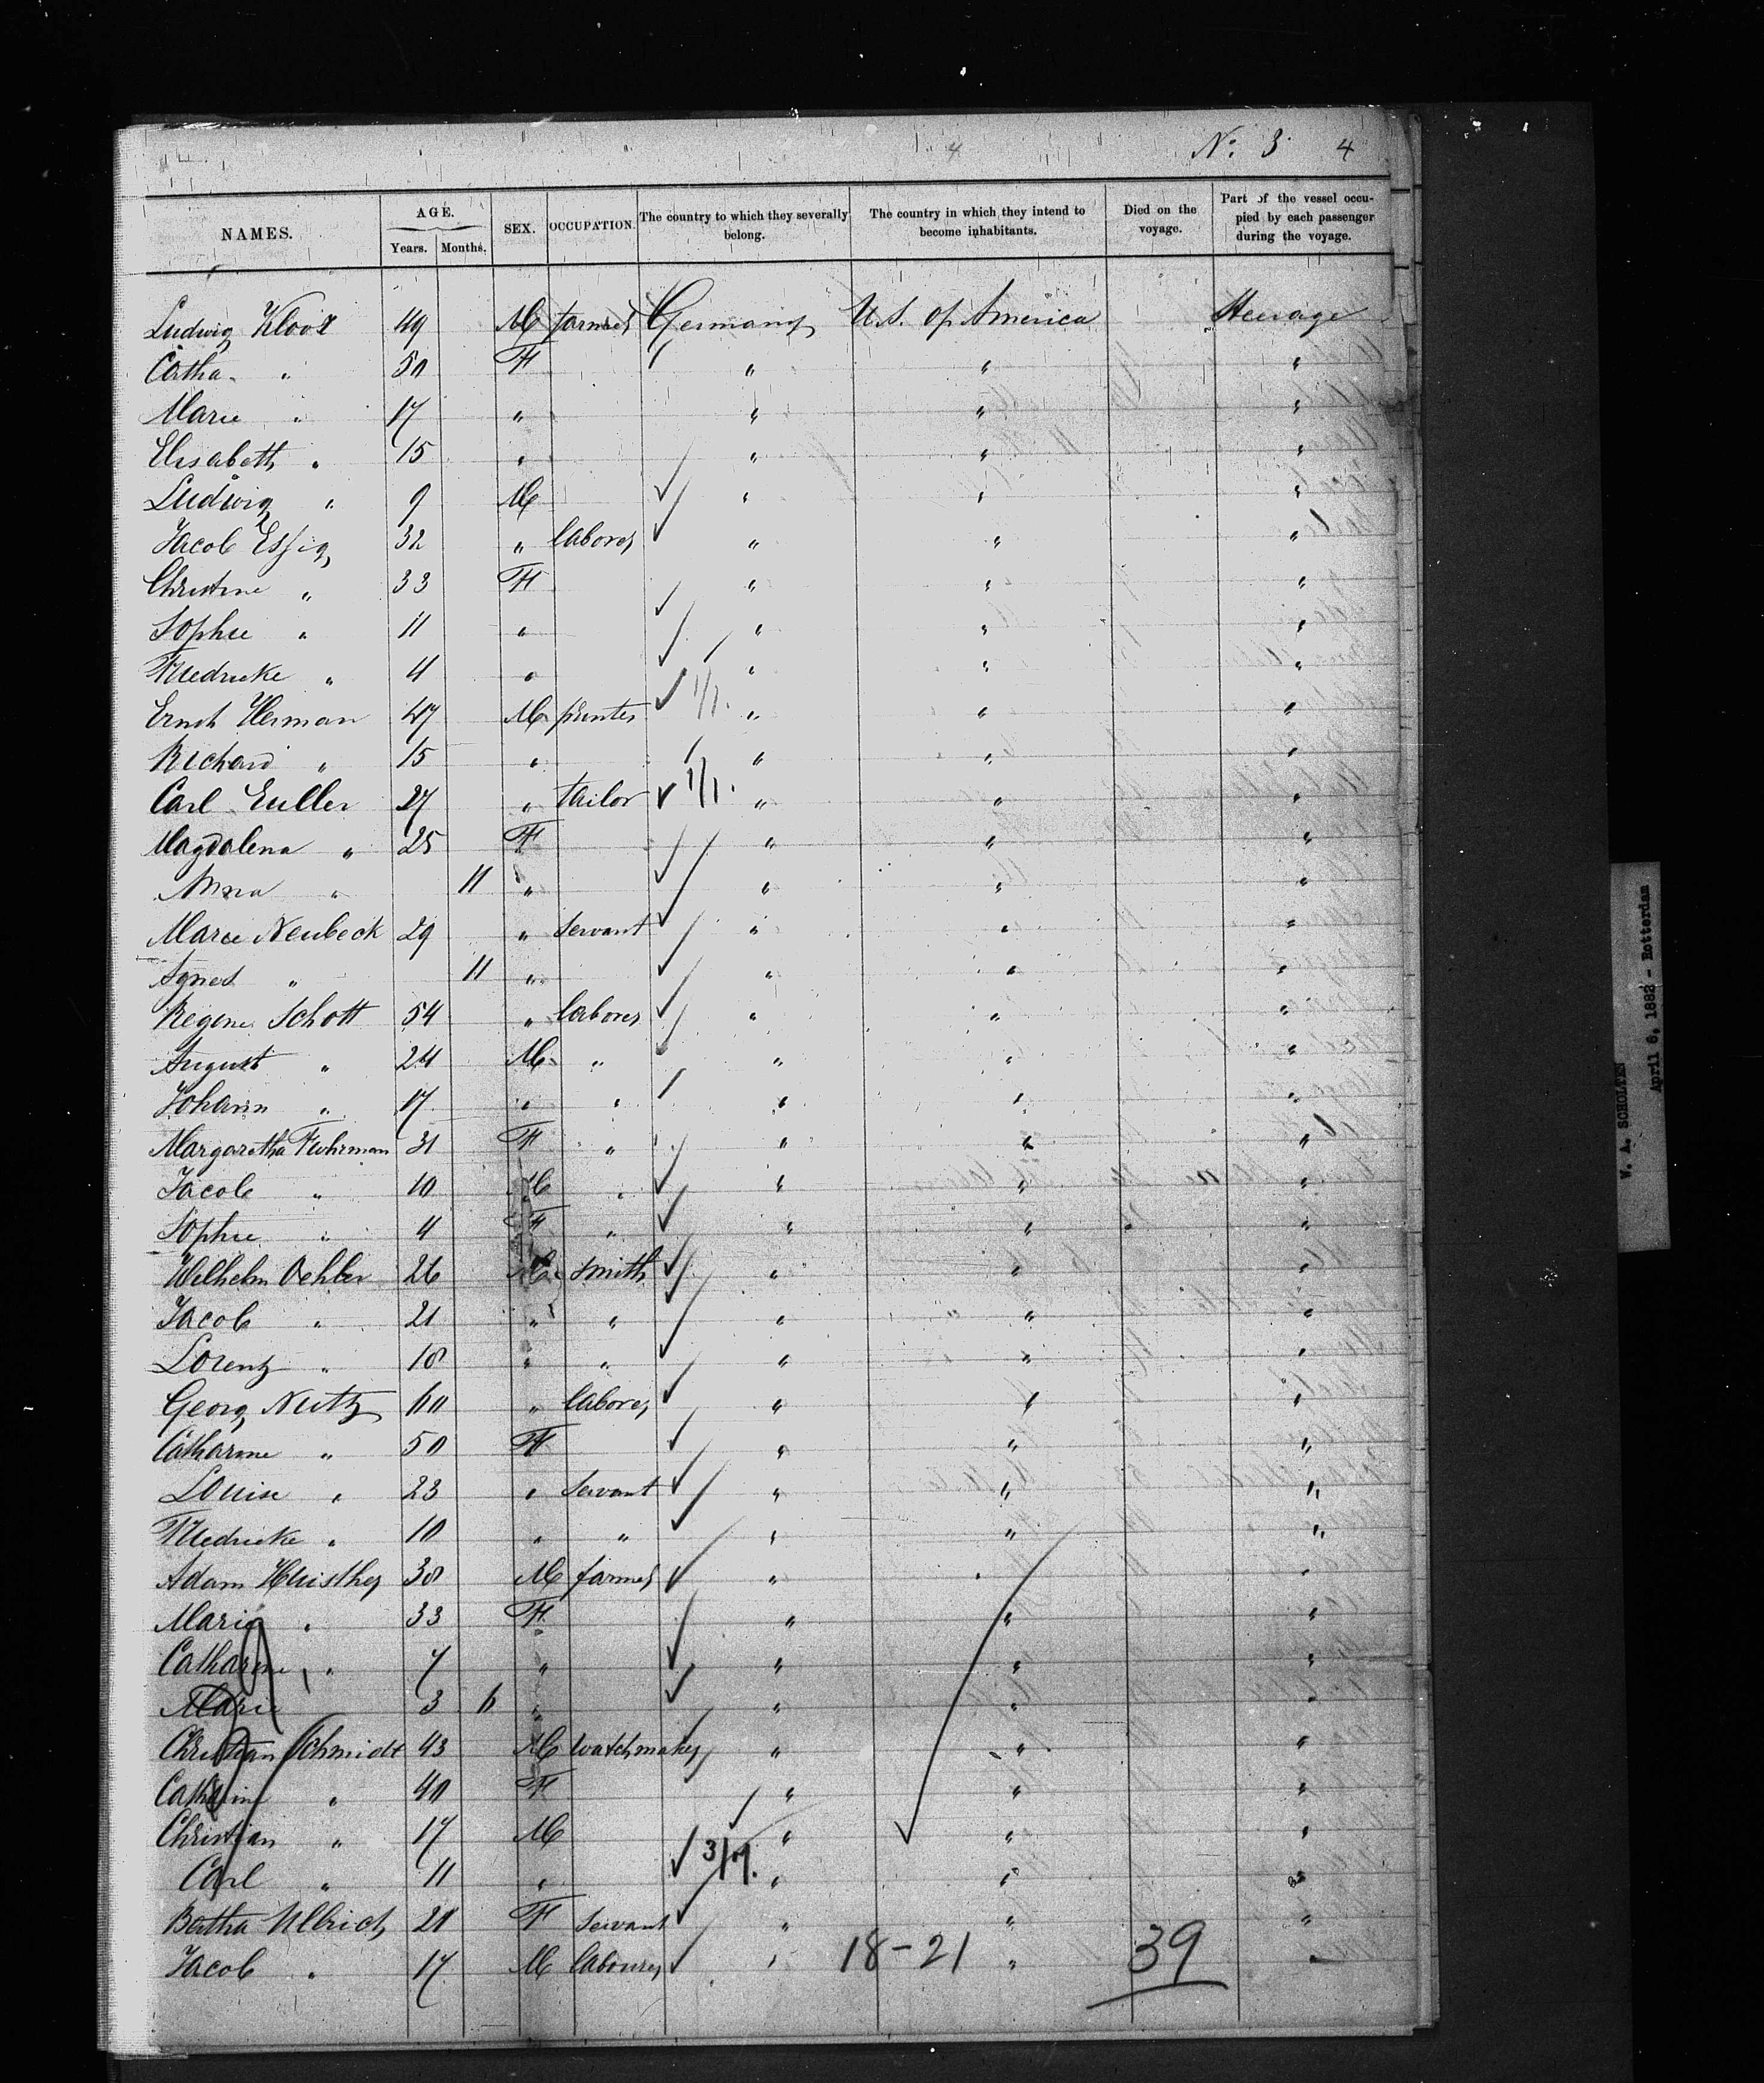 4 No. 3 4
NAMES. AGE. Years. Months. SEX. OCCUPATION. The country to which they severally belong. The country in which they intend to become inhabitants. Died on the voyage. Part of the vessel occupied by each passenger during the voyage.
Ludwig 49 M farmer Germany U.S. of America Steerage
Catha. " 50 F " " "
Marie " 17 " " " "
Elisabeth " 15 " " " "
Ludwig " 9 M " " "
Jacob Essig 32 " laborer " " "
Christine " 33 F " " "
Sophie " 11 " " " "
Friedricke " 4 " " " "
Ernst Herman 47 M printer 1/1. " " "
Richard " 15 " " " "
Carl Euller 27 " tailor 1/1. " " "
Magdalena " 25 F " " "
Anna " 11 " " " "
Marie Neubeck 29 " servant " " "
Agnes " 11 " " " "
Regine Schott 54 " laborer " " "
August " 24 M " " " "
Johann " 17 " " " " "
Margaretha Fuhrman 31 F " " " "
Jacob " 10 M " " " "
Sophie " 4 F " " " "
Wilhelm Oehler 26 M smith " " "
Jacob " 21 " " " " "
Lorenz " 18 " " " " "
Georg Neutz 60 " laborer " " "
Catharine " 50 F " " "
Louise " 23 " servant " " "
Friedricke " 10 " " " " "
Adam 38 M farmer " " "
Marie " 33 F " " "
Catharine " 7 " " " "
Marie 3 6 " " " "
Christian Schmidt 43 M watchmaker " " "
Catharine " 40 F " " "
Christian " 17 M " " "
Carl " 11 " " " "
Bertha Ullrich 21 F servant " " "
Jacob " 17 M labourer " 18-21 " 39 "
W. A. SCHOLTEN
April 6, 1882 - Rotterdam